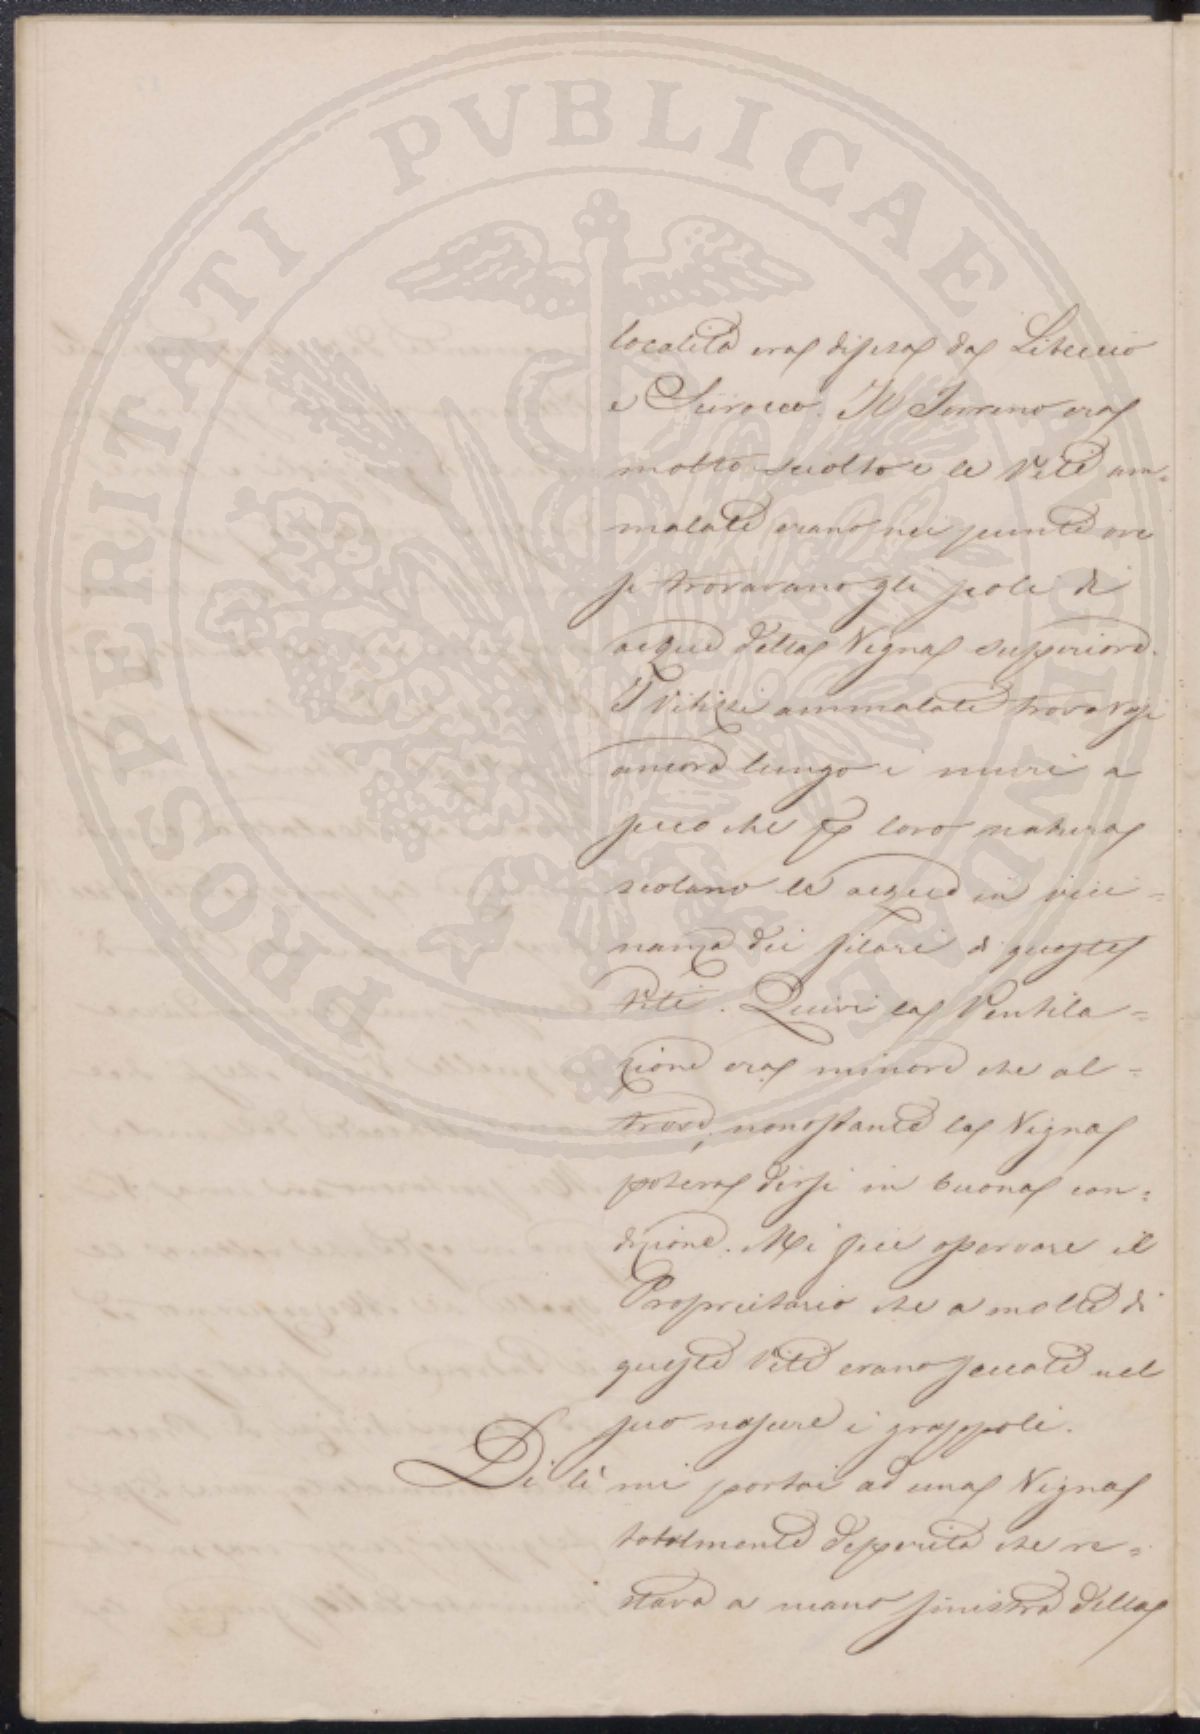 PROSPERITATI PVBLICAE VINDICE
località era difesa da Libeccio
e Scirocco. Il Terreno era
molto sciolto e le Viti am=
malate erano nei punti ove
si trovavano gli scoli di
acque della Vigna superiore.
I Vitizzi ammalati trovavasi
ancora lungo i muri a
secco che p loro natura
scolano le acque in vici=
nanza dei filari di queste
Viti. Quivi la Ventila=
zione era minore che al=
trove, nonostante la Vigna
poteva dirsi in buona con=
dizione. Mi fece osservare il
Proprietario che a molte di
queste Viti erano seccati nel
suo nascere i grappoli.
Di lì mi portai ad una Vigna
totalmente deperita che re=
stava a mano sinistra della